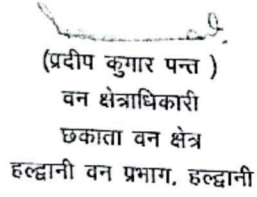 (प्रदीप कुमार पन्त )
वन क्षेत्राधिकारी
छकाता वन क्षेत्र
हल्द्वानी वन प्रभाग, हल्द्वानी